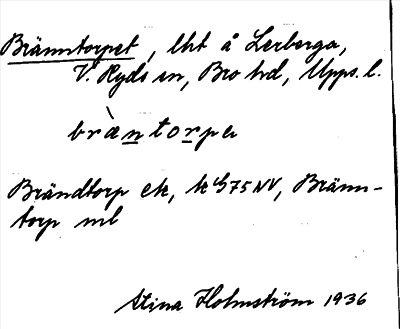 Bränntorpet, lht å Lerberga,
V. Ryds sn, Bro hd, Upps. l.
bràntorpa
Brändtorp ek, tk G75NV, Bränn-
torp mb
Stina Holmström 1936